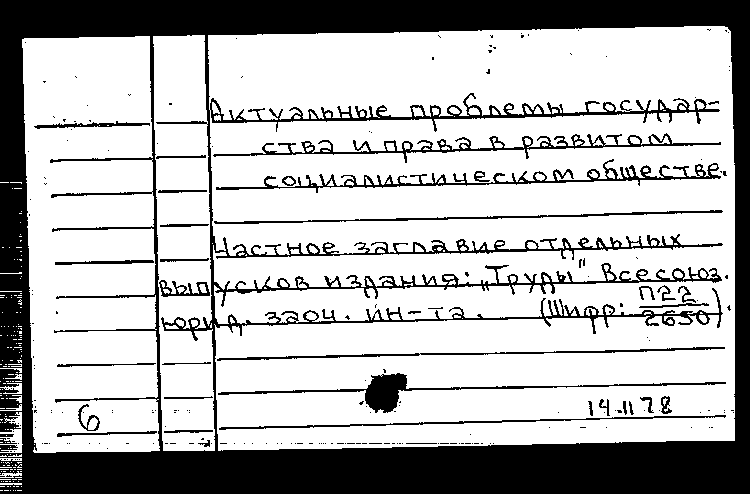 Актуальные проблемы государ-
ства и права в развитом
социалистическом обществе.
Частное заглавие отдельных
выпусков издания: „Труды" Всесоюз.
юрид. заоч. ин-та. (Шифр: П22/2650).
6
14.II 78